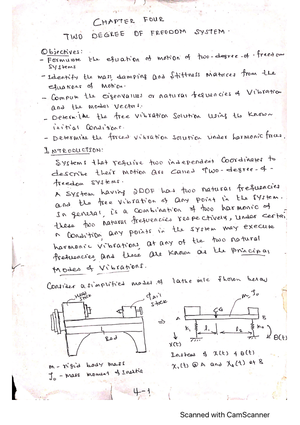 CHAPTER FOUR
TWO DEGREE OF FREEDOM SYSTEM.
Objectives:
- Formulate the equation of motion of two-degree-of-freedom
systems
- Identify the mass, damping and stiffness matrices from the
equations of motion.
- Compute the eigenvalues or natural frequencies of vibration
and the modal vectors.
- Determine the free vibration solution using the known
initial conditions.
- Determine the forced vibration solution under harmonic forces.
INTRODUCTION:
Systems that require two independent coordinates to
describe their motion are called Two-degree-of-
freedom systems.
A system having 2DOF has two natural frequencies
and the free vibration of any point in the system,
in general, is a combination of two harmonic of
these two natural frequencies respectively, under certai
n condition, any points in the system may execute
harmonic vibrations at any of the two natural
frequencies, and these are known as the principal
modes of vibrations.
Consider a simplified model of lathe m/c shown below
Head
Tail
stock
Bed
m, J₀
A
G
B
k₁
l₁
l₂
k₂
X(t)
θ(t)
m - rigid body mass
J₀ - mass moment of inertia
Instead of X(t) & θ(t)
X₁(t) @ A and X₂(t) at B
4-1
Scanned with CamScanner